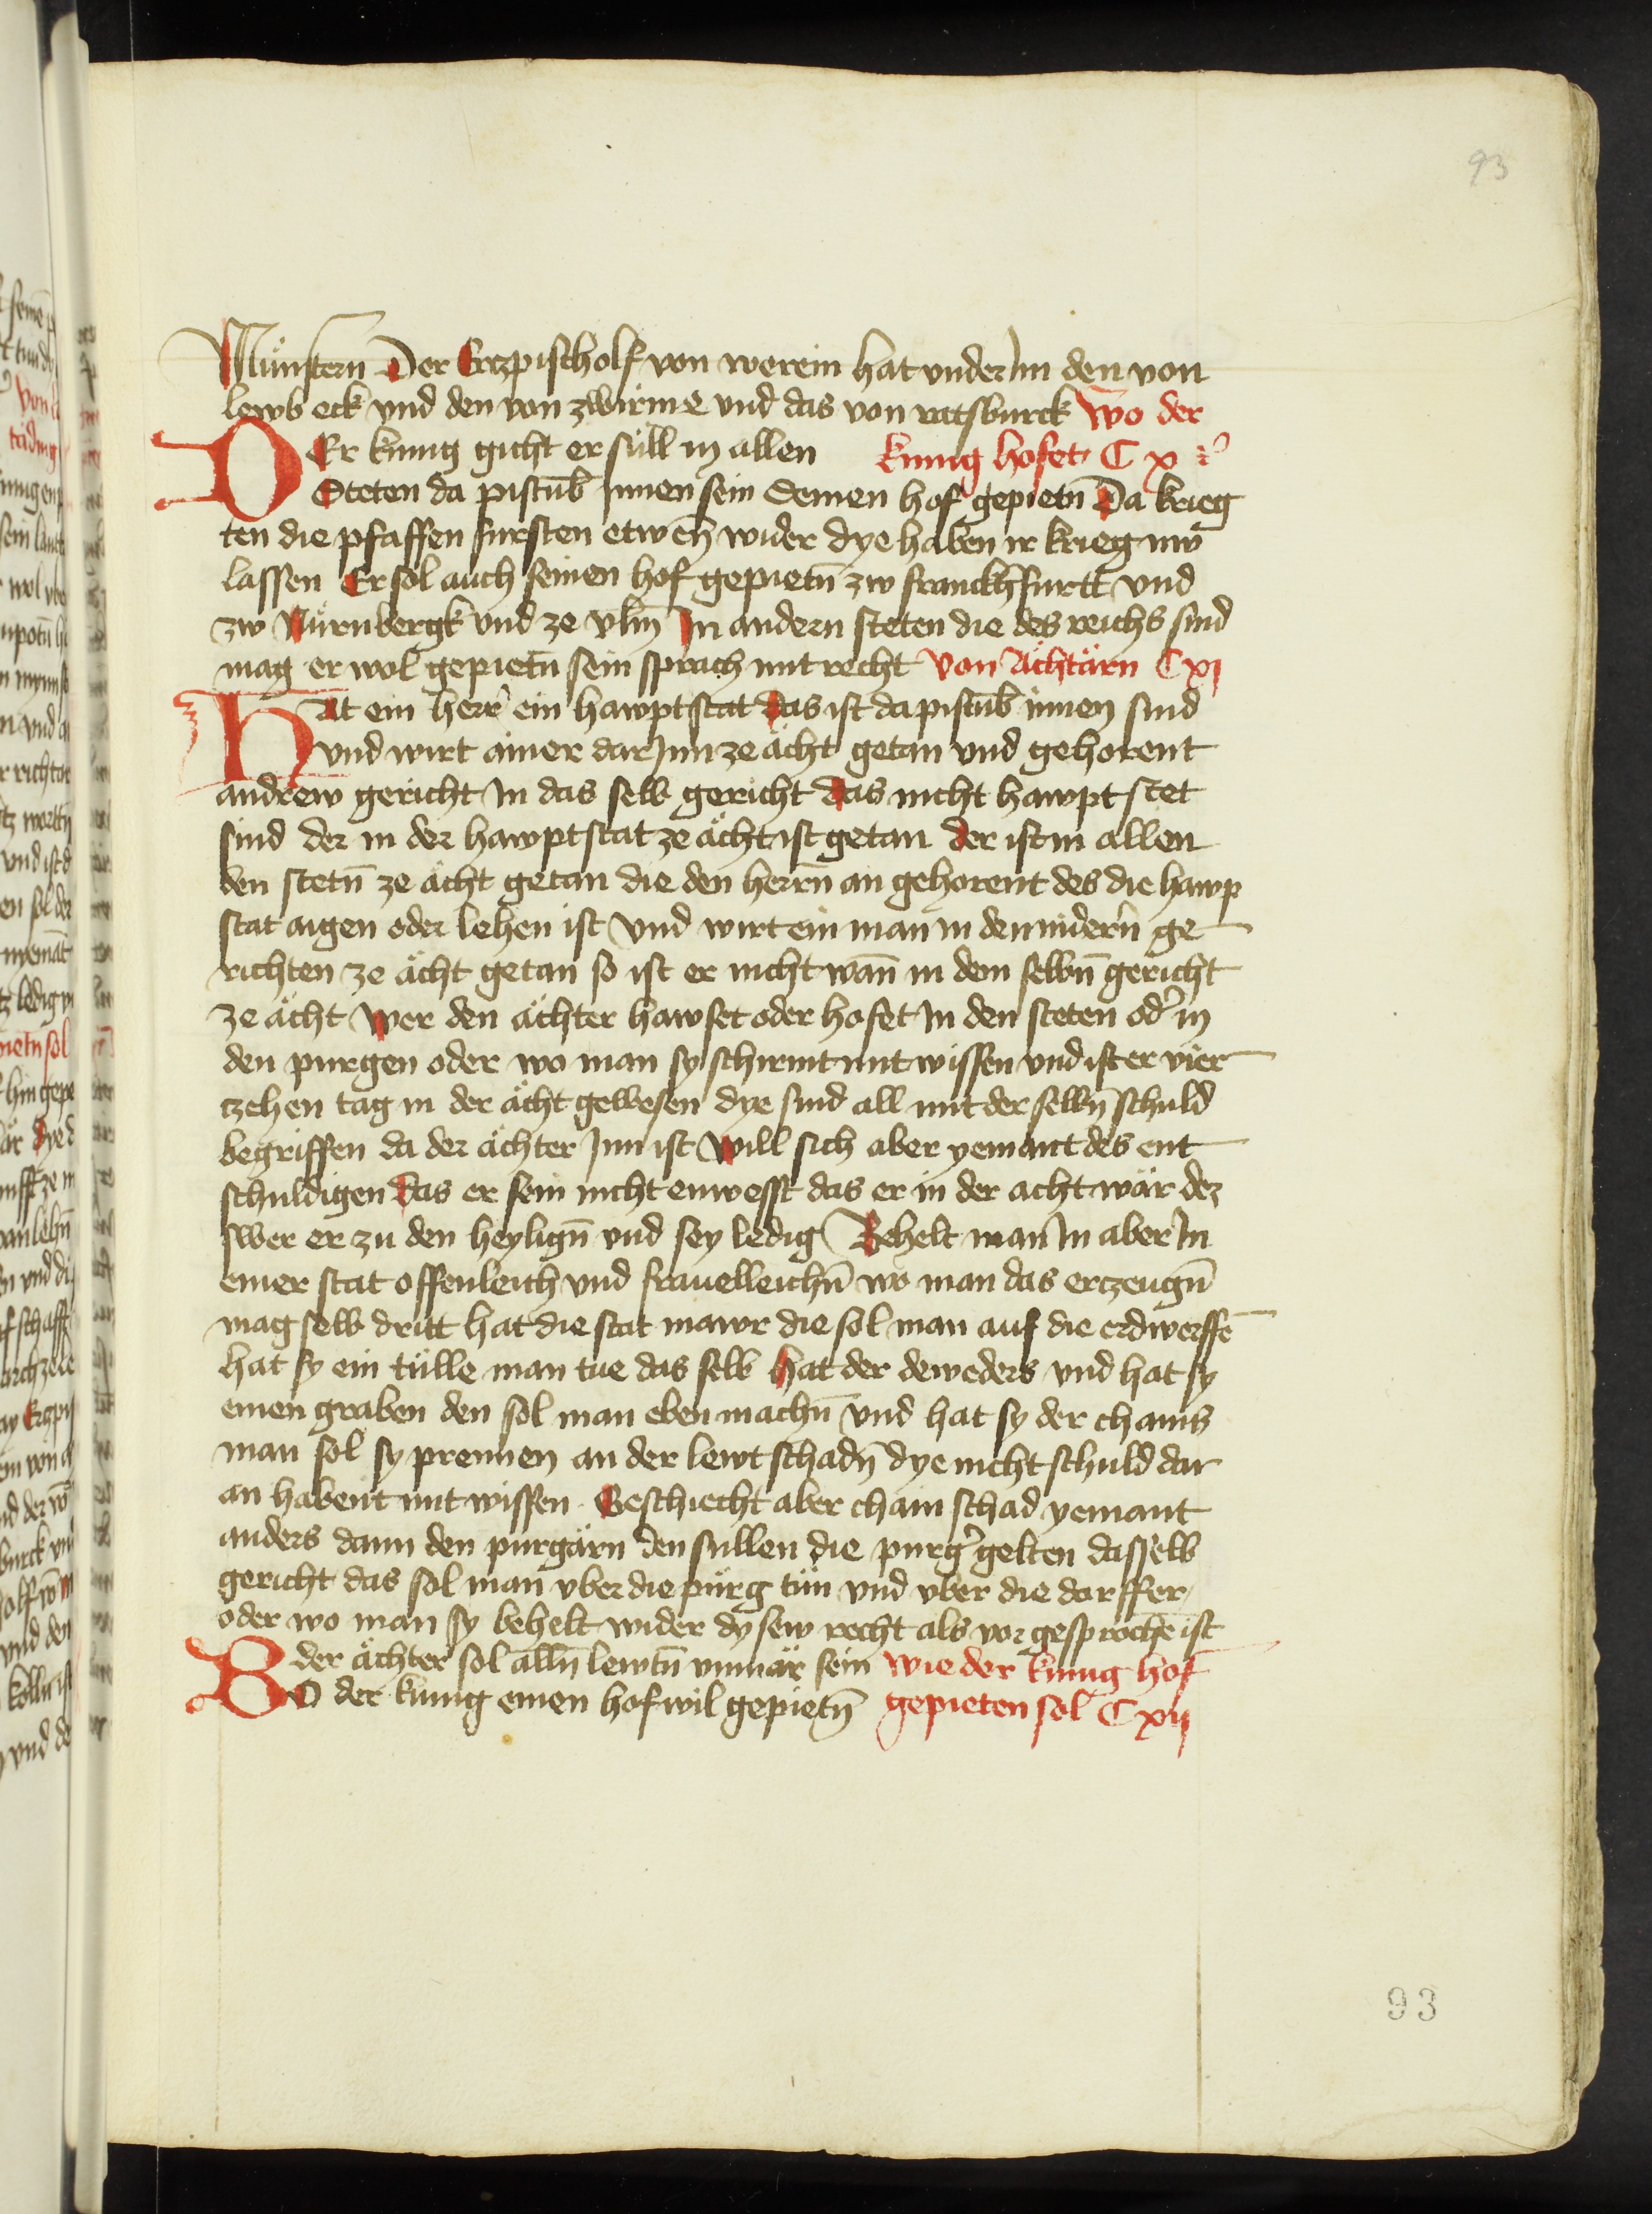 93
Münstern Der Erczpischolf von werein hat vnder Im den von
lewb eck vnd den von zwirine vnd das von ratsburck Wo der
DEr kunig gicht er süll in allen kunig hofet C x
Steten da pistūb Innen sein Seinen hof gepietn̄ Da krieg
ten die pfaffen fursten etwen̄ wider dye haben ir krieg nw
lassen Er sol auch seinen hof gepietn̄ zw franckhfurtt vnd
zw Nürnbergk vnd ze vlm̄ In andern steten die des reichs sind
mag er wol gepietn̄ sein sprach mit recht Von Ächtärn Cxi
HAt ein herr̄ ein hawptstat das ist da pistūb innen sind
vnd wirt ainer dar Inn ze ächt getan vnd gehorent
andrew gericht In das selb gericht das nicht hawpt stet
sind der in der hawptstat ze ächt ist getan der ist in allen
den stetn̄ ze ächt getan die den herrn̄ an gehorent des die hawp
stat aigen oder lehen ist Vnd wirt ein man in den nidern̄ ge
richten ze ächt getan so ist er nicht wan̄ in dem selbn̄ gericht
ze ächt Wer den ächter hawset oder hofet In den steten od̄ in
den purgen oder wo man sy schirmt mit wissen vnd ist er vier
czehen tag in der ächt gewesen dye sind all mit der selbn̄ schuld
begriffen da der ächter Inn ist Will sich aber yemant des ent
schuldigen Das er sein nicht enwesst das er in der acht wär dez
swer er zu den heylign̄ vnd sey ledig Behelt man In aber In
einer stat offenleich vnd frauelleichn̄ wo man das erczeugn̄
mag selb dritt hat die stat mawr die sol man auf die erdwerffē
hat sy ein tülle man tue das selb Hat der deweders vnd hat sy
einen graben den sol man eben machn̄ vnd hat sy der chains
man sol sy prennen an der lewt schadn̄ dye nicht schuld dar
an habent mit wissen Geschiecht aber chain schad yemant
anders dann den purgärn den sullen die purg̓ gelten dasselb
gericht das sol man vber die pürg tün vnd vber die dorffer
oder wo man sy behelt wider dy sew recht als vor gesprochē ist
der ächter sol alln̄ lewtn̄ vnmär sein Wie der kunig hof
BO der kunig einen hof wil gepietn̄ gepieten sol Cxij
93